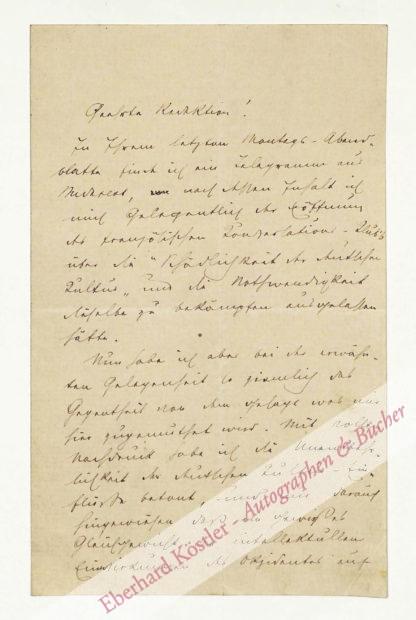 Geehrte Redaktion!
In Ihrem letzten Montags-Abend-
blatte finde ich ein Telegramm aus
Bukarest, nach dessen Inhalt ich
mich gelegentlich der Eröffnung
des französischen Konversations-Klubs
über die "Schädlichkeit der deutschen
Kultur" und die Nothwendigkeit
dieselbe zu bekämpfen ausgelassen
hätte.
Nun habe ich aber bei der erwähn-
ten Gelegenheit so ziemlich das
Gegentheil von dem gesagt was mir
hier zugemuthet wird. Mit
Nachdruck habe ich die
lichkeit der deutschen
flüsse betont, und darauf
hingewiesen daß ein gewisses
Gleichgewicht intellektuellen
Einwirkungen des Okzidentes auf
Eberhard Köstler - Autographen & Bücher